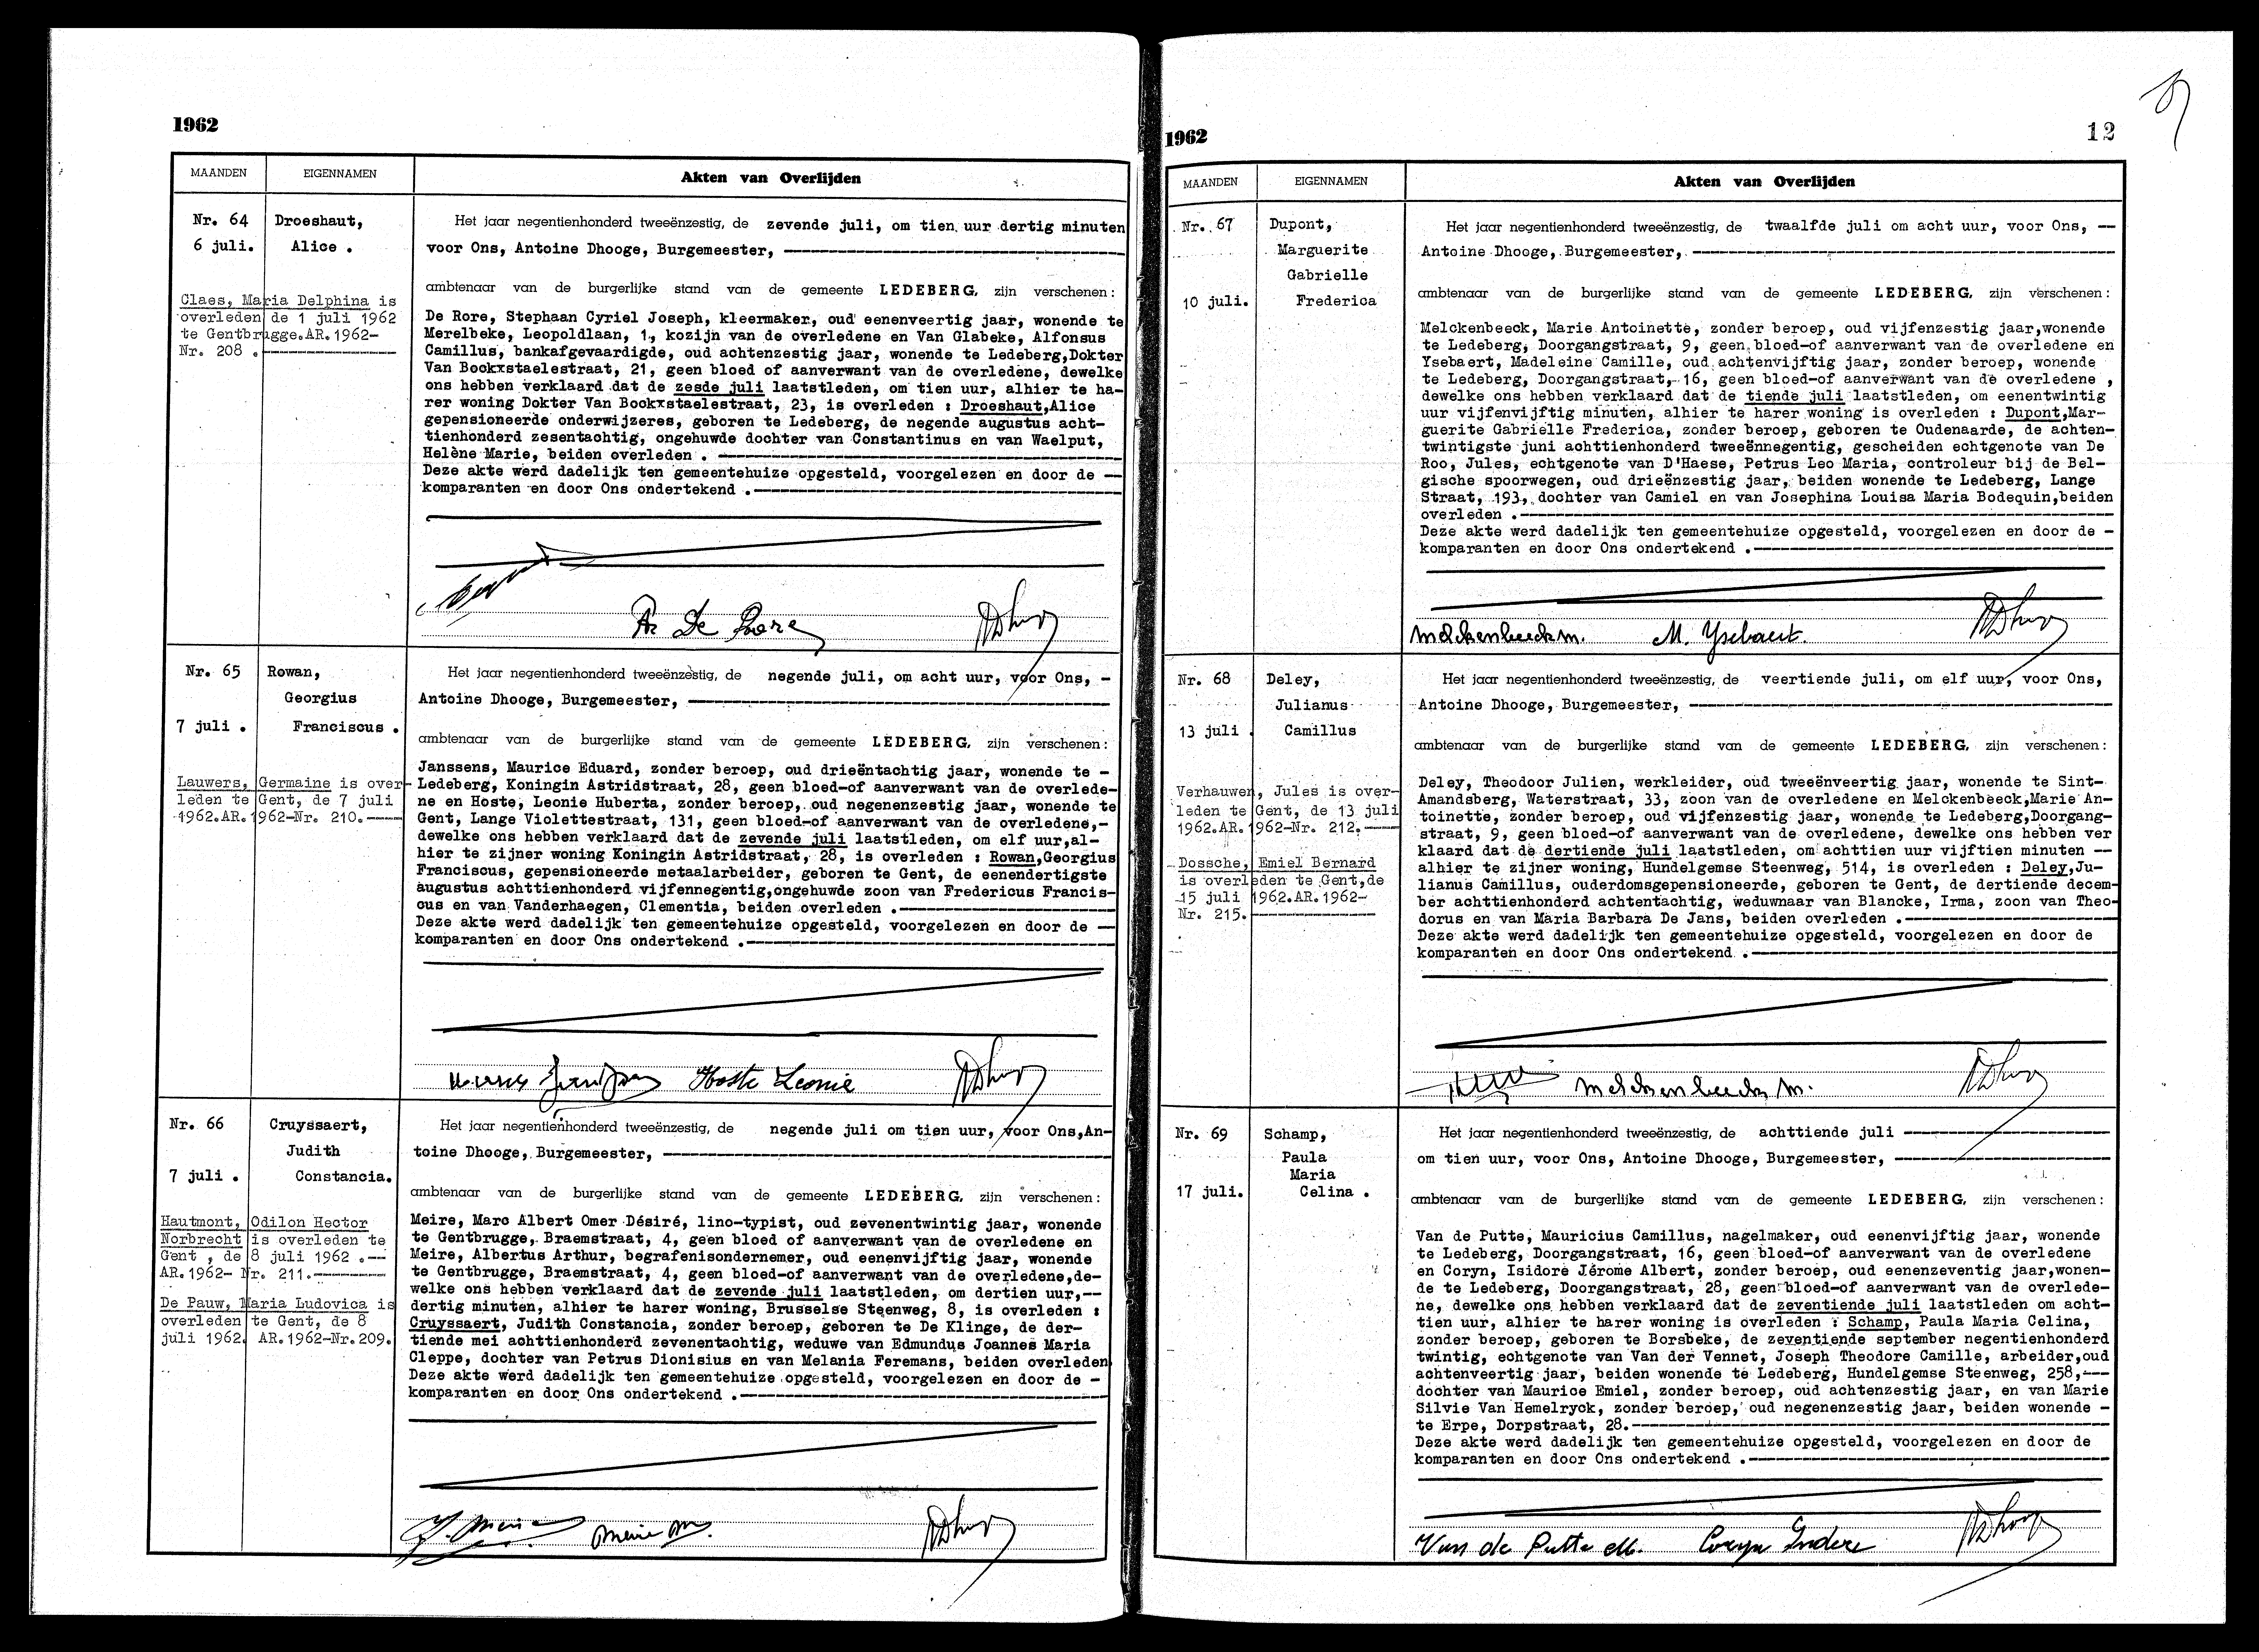 1962
MAANDEN EIGENNAMEN Akten van Overlijden
Nr. 64
6 juli.
Droeshaut,
Alice .
Claes, Maria Delphina is
overleden de 1 juli 1962
te Gentbrugge.AR.1962-
Nr. 208 .
Het jaar negentienhonderd tweeënzestig, de zevende juli, om tien uur dertig minuten
voor Ons, Antoine Dhooge, Burgemeester,
ambtenaar van de burgerlijke stand van de gemeente LEDEBERG, zijn verschenen:
De Rore, Stephaan Cyriel Joseph, kleermaker, oud eenenveertig jaar, wonende te
Merelbeke, Leopoldlaan, 1, kozijn van de overledene en Van Glabeke, Alfonsus
Camillus, bankafgevaardigde, oud achtenzestig jaar, wonende te Ledeberg,Dokter
Van Bockxstaelestraat, 21, geen bloed of aanverwant van de overledene, dewelke
ons hebben verklaard dat de zesde juli laatstleden, om tien uur, alhier te ha-
rer woning Dokter Van Bockxstaelestraat, 23, is overleden : Droeshaut,Alice
gepensioneerde onderwijzeres, geboren te Ledeberg, de negende augustus acht-
tienhonderd zesentachtig, ongehuwde dochter van Constantinus en van Waelput,
Helène Marie, beiden overleden .
Deze akte werd dadelijk ten gemeentehuize opgesteld, voorgelezen en door de
komparanten en door Ons ondertekend .
De Rore
Nr. 65
7 juli .
Rowan,
Georgius
Franciscus .
Lauwers, Germaine is over-
leden te Gent, de 7 juli
1962.AR.1962-Nr. 210.
Het jaar negentienhonderd tweeënzestig, de negende juli, om acht uur, voor Ons, -
Antoine Dhooge, Burgemeester,
ambtenaar van de burgerlijke stand van de gemeente LEDEBERG, zijn verschenen:
Janssens, Maurice Eduard, zonder beroep, oud drieëntachtig jaar, wonende te -
Ledeberg, Koningin Astridstraat, 28, geen bloed-of aanverwant van de overlede-
ne en Hoste, Leonie Huberta, zonder beroep, oud negenenzestig jaar, wonende te
Gent, Lange Violettestraat, 131, geen bloed-of aanverwant van de overledene,-
dewelke ons hebben verklaard dat de zevende juli laatstleden, om elf uur,al-
hier te zijner woning Koningin Astridstraat, 28, is overleden : Rowan,Georgius
Franciscus, gepensioneerde metaalarbeider, geboren te Gent, de eenendertigste
augustus achttienhonderd vijfennegentig,ongehuwde zoon van Fredericus Francis-
cus en van Vanderhaegen, Clementia, beiden overleden .
Deze akte werd dadelijk ten gemeentehuize opgesteld, voorgelezen en door de
komparanten en door Ons ondertekend .
Hoste Leonie
Nr. 66
7 juli .
Cruyssaert,
Judith
Constancia.
Hautmont, Odilon Hector
Norbrecht is overleden te
Gent , de 8 juli 1962 .--
AR.1962- Nr. 211.
De Pauw, Maria Ludovica is
overleden te Gent, de 8
juli 1962. AR.1962-Nr.209.
Het jaar negentienhonderd tweeënzestig, de negende juli om tien uur, voor Ons,An-
toine Dhooge, Burgemeester,
ambtenaar van de burgerlijke stand van de gemeente LEDEBERG, zijn verschenen:
Meire, Marc Albert Omer Désiré, lino-typist, oud zevenentwintig jaar, wonende
te Gentbrugge, Braemstraat, 4, geen bloed of aanverwant van de overledene en
Meire, Albertus Arthur, begrafenisondernemer, oud eenenvijftig jaar, wonende
te Gentbrugge, Braemstraat, 4, geen bloed-of aanverwant van de overledene,de-
welke ons hebben verklaard dat de zevende juli laatstleden, om dertien uur,--
dertig minuten, alhier te harer woning, Brusselse Steenweg, 8, is overleden :
Cruyssaert, Judith Constancia, zonder beroep, geboren te De Klinge, de der-
tiende mei achttienhonderd zevenentachtig, weduwe van Edmundus Joannes Maria
Cleppe, dochter van Petrus Dionisius en van Melania Feremans, beiden overleden
Deze akte werd dadelijk ten gemeentehuize opgesteld, voorgelezen en door de -
komparanten en door Ons ondertekend .
Meire M.
1962
12
MAANDEN EIGENNAMEN Akten van Overlijden
Nr. 67
10 juli.
Dupont,
Marguerite
Gabrielle
Frederica
Het jaar negentienhonderd tweeënzestig, de twaalfde juli om acht uur, voor Ons, --
Antoine Dhooge, Burgemeester,
ambtenaar van de burgerlijke stand van de gemeente LEDEBERG, zijn verschenen:
Melckenbeeck, Marie Antoinette, zonder beroep, oud vijfenzestig jaar,wonende
te Ledeberg, Doorgangstraat, 9, geen bloed-of aanverwant van de overledene en
Ysebaert, Madeleine Camille, oud achtenvijftig jaar, zonder beroep, wonende
te Ledeberg, Doorgangstraat, 16, geen bloed-of aanverwant van de overledene ,
dewelke ons hebben verklaard dat de tiende juli laatstleden, om eenentwintig
uur vijfenvijftig minuten, alhier te harer woning is overleden : Dupont,Mar-
guerite Gabrielle Frederica, zonder beroep, geboren te Oudenaarde, de achten-
twintigste juni achttienhonderd tweeënnegentig, gescheiden echtgenote van De
Roo, Jules, echtgenote van D'Haese, Petrus Leo Maria, controleur bij de Bel-
gische spoorwegen, oud drieënzestig jaar, beiden wonende te Ledeberg, Lange
Straat, 193, dochter van Camiel en van Josephina Louisa Maria Bodequin,beiden
overleden .
Deze akte werd dadelijk ten gemeentehuize opgesteld, voorgelezen en door de -
komparanten en door Ons ondertekend .
Melckenbeeck m. M. Ysebaert.
Nr. 68
13 juli .
Deley,
Julianus
Camillus
Verhauwen, Jules is over-
leden te Gent, de 13 juli
1962.AR.1962-Nr. 212.
Dossche, Emiel Bernard
is overleden te Gent,de
15 juli 1962.AR.1962-
Nr. 215.
Het jaar negentienhonderd tweeënzestig, de veertiende juli, om elf uur, voor Ons,
Antoine Dhooge, Burgemeester,
ambtenaar van de burgerlijke stand van de gemeente LEDEBERG, zijn verschenen:
Deley, Theodoor Julien, werkleider, oud tweeënveertig jaar, wonende te Sint-
Amandsberg, Waterstraat, 33, zoon van de overledene en Melckenbeeck,Marie An-
toinette, zonder beroep, oud vijfenzestig jaar, wonende te Ledeberg,Doorgang-
straat, 9, geen bloed-of aanverwant van de overledene, dewelke ons hebben ver
klaard dat de dertiende juli laatstleden, om achttien uur vijftien minuten --
alhier te zijner woning, Hundelgemse Steenweg, 514, is overleden : Deley,Ju-
lianus Camillus, ouderdomsgepensioneerde, geboren te Gent, de dertiende decem-
ber achttienhonderd achtentachtig, weduwnaar van Blancke, Irma, zoon van Theo-
dorus en van Maria Barbara De Jans, beiden overleden .
Deze akte werd dadelijk ten gemeentehuize opgesteld, voorgelezen en door de
komparanten en door Ons ondertekend .
Melckenbeeck m.
Nr. 69
17 juli.
Schamp,
Paula
Maria
Celina .
Het jaar negentienhonderd tweeënzestig, de achttiende juli
om tien uur, voor Ons, Antoine Dhooge, Burgemeester,
ambtenaar van de burgerlijke stand van de gemeente LEDEBERG, zijn verschenen:
Van de Putte, Mauricius Camillus, nagelmaker, oud eenenvijftig jaar, wonende
te Ledeberg, Doorgangstraat, 16, geen bloed-of aanverwant van de overledene
en Coryn, Isidore Jérome Albert, zonder beroep, oud eenenzeventig jaar,wonen-
de te Ledeberg, Doorgangstraat, 28, geen bloed-of aanverwant van de overlede-
ne, dewelke ons hebben verklaard dat de zeventiende juli laatstleden om acht-
tien uur, alhier te harer woning is overleden : Schamp, Paula Maria Celina,
zonder beroep, geboren te Borsbeke, de zeventiende september negentienhonderd
twintig, echtgenote van Van der Vennet, Joseph Theodore Camille, arbeider,oud
achtenveertig jaar, beiden wonende te Ledeberg, Hundelgemse Steenweg, 258,---
dochter van Maurice Emiel, zonder beroep, oud achtenzestig jaar, en van Marie
Silvie Van Hemelryck, zonder beroep, oud negenenzestig jaar, beiden wonende -
te Erpe, Dorpstraat, 28.
Deze akte werd dadelijk ten gemeentehuize opgesteld, voorgelezen en door de
komparanten en door Ons ondertekend .
Van de Putte M. Coryn Isidore